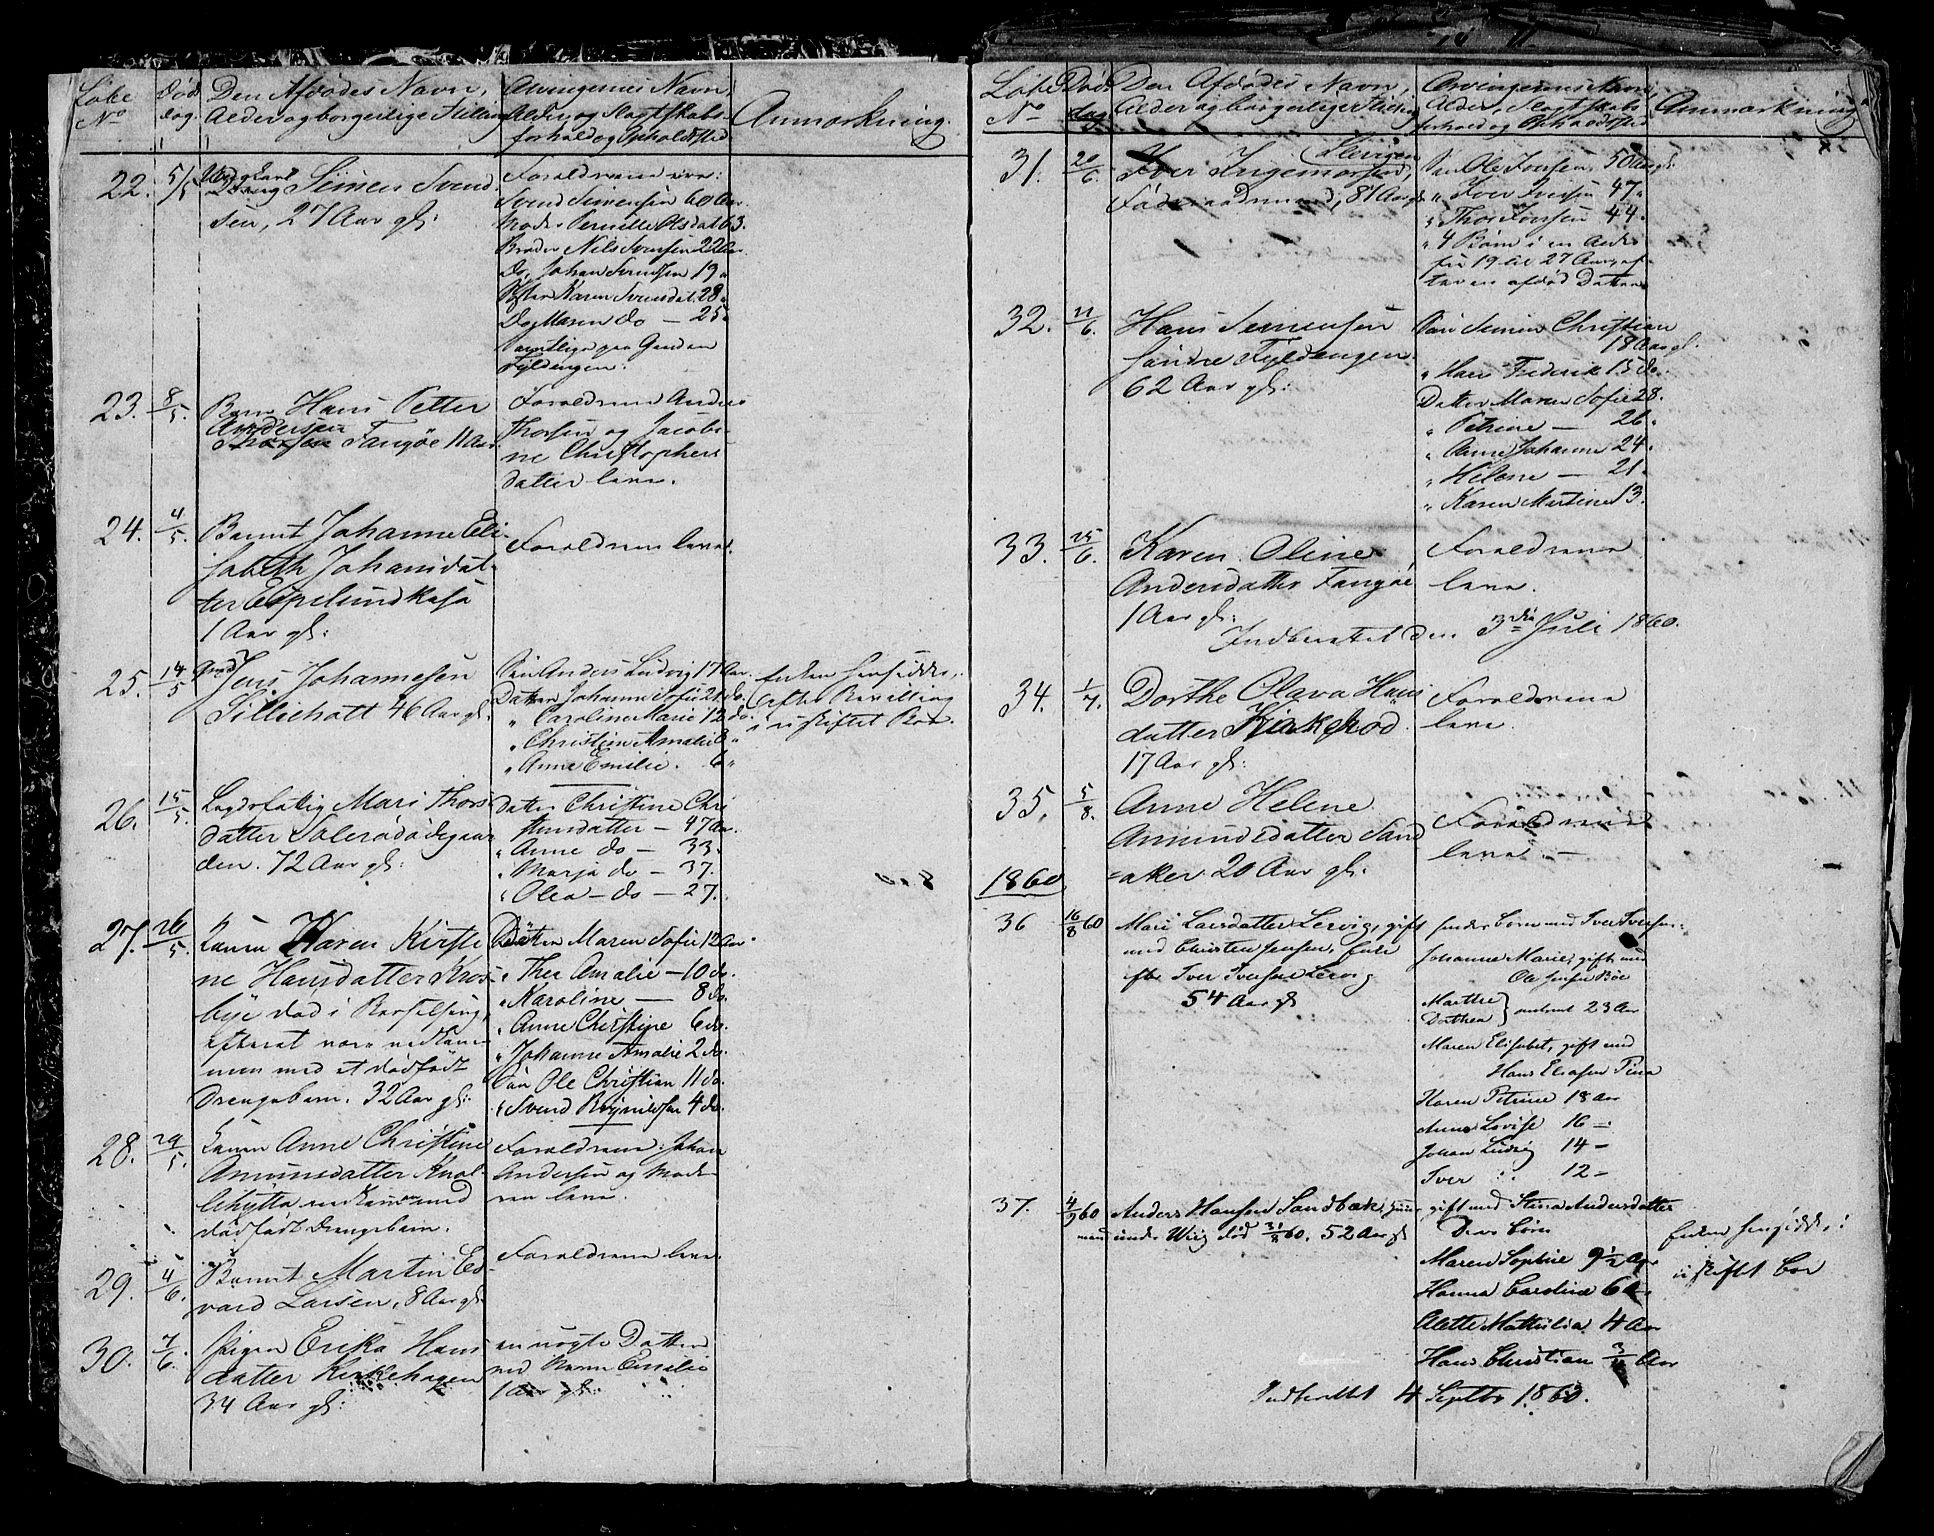 Løbe No
Døds dag
Den Afdødes Navn,
Alder og borgerlige Stilling
Arvingernes Navn,
Alder, og Slægtskabs
forhold og Opholdssted
Anmærkning.
22. 5/5
Ungkarl Simen Svend
sen, 27 Aar gl:
Forældrene ere:
Svend Simensen 60 Aar
Moder Pernille Olsdat 63.
Broder Nils Svensen 22 Aar
Do, Johan Svendsen 19 "
Søster Karen Svensdat. 28 "
Do, Maren do — 25 "
Samtlige paa Gaarden
Fyldengen.
23. 8/5.
Barn Hans Petter
Andersen
Fangøe 11 Aar
Forældrene Anders
Thorsen og Jacobi-
ne Christophers
datter leve.
24. 4/5.
Barnet Johanne Eli-
sabeth Johansdat-
ter Espelundkasa
1 Aar gl:
Forældrene leve.
25. 14/5
Gmd Jens Johannesen
Silliehatt 46 Aar gl.
Søn Anders Ludvig 17 Aar.
Datter Johanne Sofie 21 do.
" Caroline Marie 12 do.
" Christine Amalie 8 "
" Anne Emilie. 6 "
Enken hensidder
efter Bevilling
i uskiftet Boe.
26. 15/5
Lægdsfattig Mari Thors-
datter Solerødødegaar
den. 72 Aar gl:
Datter Christine Chri
stensdatter — 47 Aar.
" Anne do — 33.
" Marja do — 37.
" Olea — do — 27.
27. 26/5
Konen Karen Kirsti
ne Hansdatter Kros-
bye død i Barselseng,
efterat være nedkom-
men med et dødfødt
Drengebarn. 32 Aar gl:
Datter Maren Sofie 12 Aar.
" Thea Amalie — 10 do.
" Karoline — 8 do.
" Anne Christine 6 do.
" Johanne Amalie 2 do.
Søn Ole Christian 11 do.
" Svend 4 do.
28. 29/5.
Konen Anne Christine
Amundsdatter
nedkommen med
dødfødt Drengebarn.
Forældrene: Johan
Andersen og Mode-
ren leve.
29. 4/6
Barnet Martin Ed-
vard Larsen, 8 Aar gl.
Forældrene leve.
30. 7/6.
Pigen Erika Hans
datter Kirkehagen
34 Aar gl:
en uægte Datter
ved Navn Emilie
1 Aar gl:
Løbe No
Døds dag
Den Afdødes Navn,
Alder og borgerlige Stilling
Arvingernes Navn,
Alder, Slægtskabs
forhold og Opholdssted
Anmærkning
31. 20/6.
Iver Ingemorsrød,
Føderaadsmand, 81 Aar gl.
Søn Ole Iversen, 50 Aar gl.
" Iver Iversen 47 "
" Thor Iversen 44 "
" 4 Børn i en Alder
fra 19 til 27 Aar, ef-
ter en afdød Datter.
32. 21/6.
Hans Simensen
søndre Fyldengen.
62 Aar gl:
Søn Simen Christian
18 Aar gl.
" Hans Frederik 15 do.
Datter Maren Sofie 28.
" Petrine — 26.
" Anne Johanne 24.
" Helene — 21.
" Karen Martine 13.
33. 25/6.
Karen Oline
Andersdatter Fangøe
1 Aar gl:
Forældrene
leve.
Indberettet den 3die Juli 1860.
34. 1/7.
Dorthe Olava Hans
datter Kirkerød
17 Aar gl:
Forældrene
leve.
35. 5/8.
Anne Helene
Amundsdatter Sand
aker. 20 Aar gl:
Forældrene
leve. —
1860
36 16/8 60
Mari Larsdatter Lervig, gift
med Christen Jensen, Enke
efter Iver Iversen Lervig
54 Aar gl
Børn med Iver Iversen:
Johanne Marie, gift med
Ole Jensen Bøe
Marthe
Dorthea } 23 Aar
Maren Elisabet, gift med
Hans Eliasen
Karen Petrine 18 Aar
Anne Lovise 16 —
Johan Ludvig 14 —
Iver 12 —
37. 4/9 60
Anders Hansen Sandbæk, Huus
mand under Wiig død 31/8 60. 52 Aar gl
gift med Stina Andersdatter
Deres Børn
Maren Sophie 9 1/2 Aar
Hanna Caroline 6 Aar
Alette Mathilia 4 Aar
Hans Christian 3/4 Aar
Enken hensidder i
uskiftet Boe
Indberettet 4 Septbr 1860.